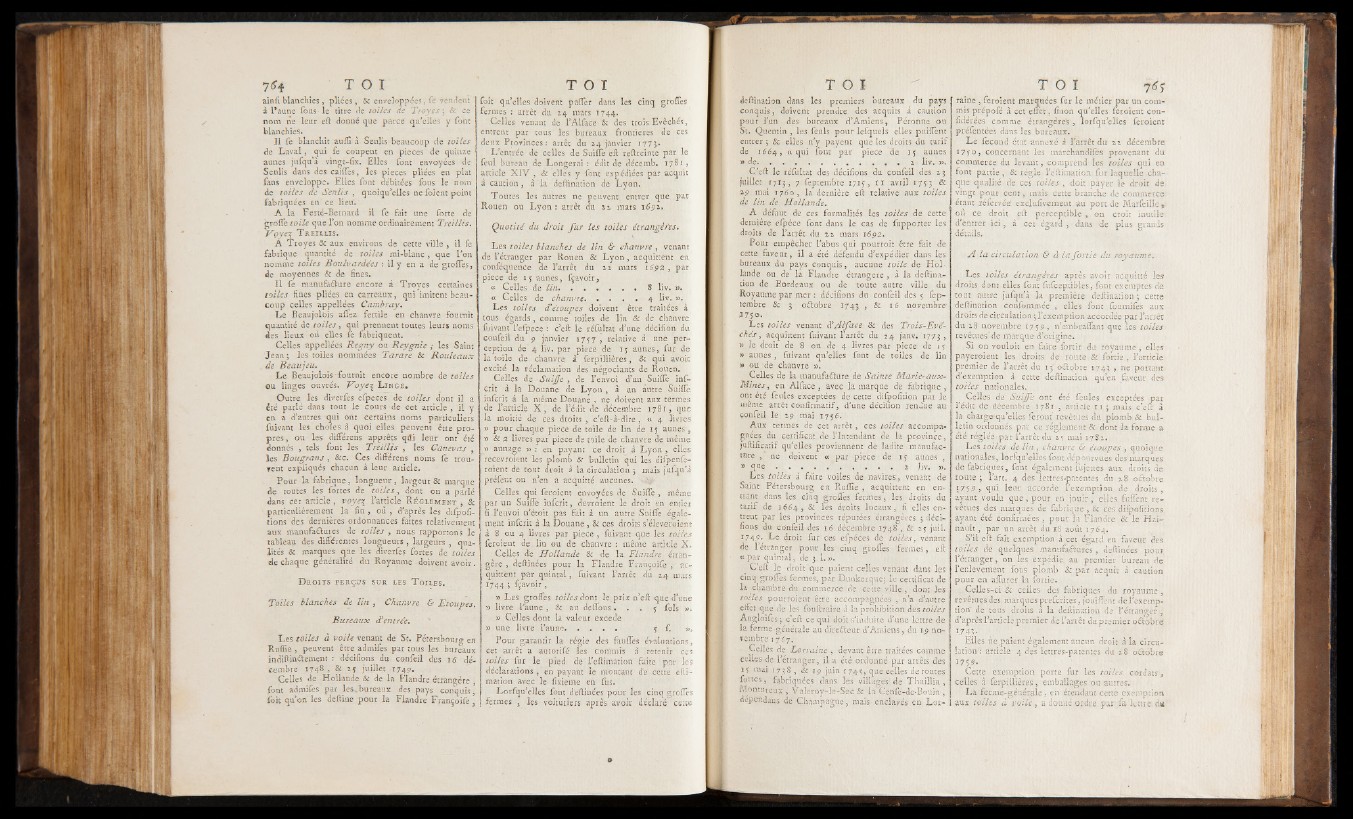 764 T O I
ainſi blanchies, pliées, & enveloppées, ſe vendent
à l'aune ſous le titre de toiles de Troyes; & ce
nom ne leur eſt donné que parce qu'elles y ſont
blanchies.
Il ſe blanchit auſſi à Senlis beaucoup de toiles
de Laval, qui ſe coupent en pieces de quinze
aunes juſqu'à vingt-ſix. Elles ſont envoyées de
Senlis dans des caiſſes, les pieces pliées en plat
ſans enveloppe. Elles ſont débitées ſous le nom
de toiles de Senlis, quoiqu'elles ne ſoient point
fabriquées en ce lieu.
A la Ferté-Bernard il ſe fait une ſorte de
groſſe toile que l'on nomme ordinairement Treillis.
Voyez TREILLIS.
A Troyes & aux environs de cette ville, il ſe
fabrique quantité de toiles mi-blanc, que l'on
nomme toiles Boulvardées: il y en a de groſſes,
de moyennes & de fines.
Il ſe manufacture encore à Troyes certaines
toiles fines pliées en carreaux, qui imitent beau-
coup celles appellées Cambray.
Le Beaujolois aſſez fertile en chanvre fournit
quantité de toiles, qui prennent toutes leurs noms
des lieux où elles ſe fabriquent.
Celles appellées Regny ou Reygnie; les Saint
Jean; les toiles nommées Tarare & Rouleaux
de Beaujeu.
Le Beaujolois fournit encore nombre de toiles
ou linges ouvrés. Voyez LINGE.
Outre les diverſes eſpeces de toiles dont il a
été parlé dans tout le cours de cet article, il y
en a d'autres qui ont certains noms particuliers
ſuivant les choſes à quoi elles peuvent être pro-
pres, ou les différens apprêts qui leur ont été
donnés, tels ſont les Treillis, les Canevas,
les Bougrans, &c. Ces différens noms ſe trou-
vent expliqués chacun à leur article.
Pour la fabrique, longueur, largeur & marque
de toutes les ſortes de toiles, dont on a parlé
dans cet article, voyez l'article RÉGLEMENT, &
particulièrement la fin, où, d'après les diſpoſi-
tions des dernières ordonnances faites relativement
aux manufactures de toiles, nous rapportons le
tableau des différentes longueurs, largeurs, qua-
lités & marques que les diverſes ſortes de toiles
de chaque généralité du Royaume doivent avoir.
DROITS PERÇUS SUR LES TOILES.
Toiles blanches de lin, Chanvre & Etoupes.
Bureaux d'entrée.
Les toiles à voile venant de St. Pétersbourg en
Ruſſie, peuvent être admiſes par tous les bureaux
indiſtinctement: déciſions du conſeil des 16 dé-
cembre 1748, & 25 juillet 1749.
Celles de Hollande & de la Flandre étrangère,
ſont admiſes par les bureaux des pays conquis,
ſoit qu'on les deſtine pour la Flandre Françoiſe,
T O I
ſoit qu'elles doivent paſſer dans les cinq groſſes
fermes: arrêt du 24 mars 1744.
Celles venant de l'Alſace & des trois Evêchés,
entrent par tous les bureaux frontieres de ces
deux Provinces: arrêt du 24 janvier 1773.
L'entrée de celles de Suiſſe eſt reſtreinte par le
ſeul bureau de Longeraï: édit de décemb. 1781,
article XIV, & elles y ſont expédiées par acquit
à caution, à la deſtination de Lyon.
Toutes les autres ne peuvent entrer que par
Rouen ou Lyon: arrêt du 22 mars 1692.
Quotité du droit ſur les toiles étrangères.
Les toiles blanches de lin & chanvre, venant
de l'étranger par Rouen & Lyon, acquittent en
conſéquence de l'arrêt du 22 mars 1692, par
piece de 15 aunes, ſçavoir,
« Celles de lin. . . . . . . 8 liv. ».
« Celles de chanvre. . . . . 4 liv. ».
Les toiles d'étoupes doivent être traitées à
tous égards, comme toiles de lin & de chanvre
ſuivant l'eſpece: c'eſt le réſultat d'une déciſion du
conſeil du 9 janvier 1757, relative à une per-
ception de 4 liv. par piece de 15 aunes, ſur de
la toile de chanvre à ſerpillières, & qui avoit
excité la réclamation des négocians de Rouen.
Celles de Suiſſe, de l'envoi d'un Suiſſe inſ-
crit à la Douane de Lyon, à un autre Suiſſe
inſcrit à la même Douane, ne doivent aux termes
de l'article X, de l'édit de décembre 1781, que
la moitié de ces droits, c'eſt-à-dire, « 4 livres
» pour chaque piece de toile de lin de 15 aunes,
» & 2 livres par piece de toile de chanvre de même
» aunage »: en payant ce droit à Lyon, elles
recevroient les plomb & bulletin qui les diſpenſe-
roient de tout droit à la circulation; mais juſqu'à
préſent on n'en a acquitté aucunes.
Celles qui ſeroient envoyées de Suiſſe, même
par un Suiſſe inſcrit, devroient le droit en entier
ſi l'envoi n'étoit pas fait à un autre Suiſſe égale-
ment inſcrit à la Douane, & ces droits s'éleveroient
à 8 ou 4 livres par piece, ſuivant que les toiles
ſeroient de lin ou de chanvre: même article X.
Celles de Hollande & de la Flandre étran-
gère, deſtinées pour la Flandre Françoiſe, ac-
quittent par quintal, ſuivant l'arrêt du 24 mars
1744; ſçavoir,
» Les groſſes toiles dont le prix n'eſt que d'une
» livre l'aune, & au deſſous. . . 5 ſols ».
» Celles dont la valeur excede
» une livre l'aune. . . . . 5 ſ. ».
Pour garantir la régie des fauſſes évaluations,
cet arrêt a autoriſé les commis à retenir ces
toiles ſur le pied de l'eſtimation faite par les
déclarations, en payant le montant de cette eſti-
mation avec le ſixieme en ſus.
Lorſqu'elles ſont deſtinées pour les cinq groſſes
fermes, les voituriers après avoir déclaré cette
T O I
deſtination dans les premiers bureaux du pays
conquis, doivent prendre des acquits à caution
pour l'un des bureaux d'Amiens, Péronne ou
St. Quentin, les ſeuls pour leſquels elles puiſſent
entrer; & elles n'y payent que les droits du tarif
de 1664, « qui ſont par piece de 15 aunes
» de. . . . . . . . . . . . 2 liv. ».
C'eſt le réſultat des déciſions du conſeil des 23
juillet 1715, 7 ſeptembre 1715, 11 avril 1753 &
29 mai 1760, la dernière eſt relative aux toiles
de lin de Hollande.
A défaut de ces formalités les toiles de cette
dernière eſpèce ſont dans le cas de ſupporter les
droits de l'arrêt du 22 mars 1692.
Pour empêcher l'abus qui pourroit être fait de
cette faveur, il a été défendu d'expédier dans les
bureaux du pays conquis, aucune toile de Hol
lande ou de la Flandre étrangere, à la deſtina-
tion de Bordeaux ou de toute autre ville du
Royaume par mer: déciſions du conſeil des 5 ſep-
tembre & 3 octobre 1743, & 16 novembre
1750.
Les toiles venant d'Alſace & des Trois-Evê-
chés, acquittent ſuivant l'arrêt du 24 janv. 1773,
» le droit de 8 ou de 4 livres par piece de 15
» aunes, ſuivant qu'elles ſont de toiles de lin
» ou de chanvre ».
Celles de la manufacture de Sainte Marie-aux-
Mines, en Alſace, avec la marque de fabrique,
ont été ſeules exceptées de cette diſpoſition par le
même arrêt confirmatif, d'une déciſion rendue au
conſeil le 29 mai 1756.
Aux termes de cet arrêt, ces toiles accompa-
gnées du certificat de l'Intendant de la province,
juſtificatif qu'elles proviennent de ladite manufac-
ture, ne doivent « par piece de 15 aunes,
» que . . . . . . . . . . 2 liv. ».
Les toiles à faire voiles de navires, venant de
Saint Pétersbourg en Ruſſie, acquittent en en-
trant dans les cinq groſſes fermes, les droits du
tarif de 1664, & les droits locaux, ſi elles en-
trent par les provinces réputées étrangères; déci-
ſions du conſeil des 16 décembre 1748, & 25 juil.
1749. Le droit ſur ces eſpèces de toiles, venant
de l'étranger pour les cinq groſſes fermes, eſt
« par quintal, de 3 l. ».
C'eſt le droit que paient celles venant dans les
cinq groſſes fermes, par Dunkerque; le certificat de
la chambre du commerce de cette ville, dont les
toiles pourroient être accompagnées, n'a d'autre
effet que de les ſouſtraire à la prohibition des toiles
Angloiſes; c'eſt ce qui doit s'induire d'une lettre de
la ferme générale au directeur d'Amiens, du 19 no-
vembre 1767.
Celles de Lorraine, devant être traitées comme
celles de l'étranger, il a été ordonné par arrêts des
15 mai 1728, & 19 juin 1745, que celles de toutes
ſortes, fabriquées dans les villages de Thuillia,
Montreux, Valeroy-le-Sec & la Cenſe-de-Bouin,
dépendans de Champagne, mais enclavés en Lor-
T O I 765
raine, ſeroient marquées ſur le métier par un com-
mis prépoſé à cet effet, ſinon qu'elles ſeroient con-
ſidérées comme étrangères, lorſqu'elles ſeroient
préſentées dans les bureaux.
Le ſecond état annexé à l'arrêt du 22 décembre
1750, concernant les marchandiſes provenant du
commerce du levant, comprend les toiles qui en
font partie, & régle l'eſtimation ſur laquelle cha-
que qualité de ces toiles, doit payer le droit de
vingt pour cent; mais cette branche de commerce
étant réſervée excluſivement au port de Marſeille,
où ce droit eſt perceptible, on croit inutile
d'entrer ici, à cet égard, dans de plus grands
détails.
A la circulation & à la ſortie du royaume.
Les toiles étrangères après avoir acquitté les
droits dont elles ſont ſuſceptibles, ſont exemptes de
tout autre juſqu'à la première deſtination; cette
deſtination conſommée, elles ſont ſoumiſes aux
droits de circulation; l'exemption accordée par l'arrêt
du 28 novembre 1759, n'embraſſant que les toiles
revêtues de marque d'origine.
Si on vouloit en faire ſortir du royaume, elles
payeroient les droits de route & ſortie, l'article
premier de l'arrêt du 15 octobre 1743, ne portant
d'exemption à cette deſtination qu'en faveur des
toiles nationales.
Celles de Suiſſe ont été ſeules exceptées par
l'édit de décembre 1781, article 11; mais c'eſt à
la charge qu'elles ſeront revêtues du plomb & bul-
letin ordonnés par ce réglement & dont la forme a
été réglée par l'arrêt du 25 mai 1782.
Les toiles de lin, chanvre & étoupes, quoique
nationales, lorſqu'elles ſont dépourvues des marques
de fabriques, ſont également ſujettes aux droits de
route; l'art. 4 des lettres-patentes du 28 octobre
1759, qui leur accorde l'exemption de droits,
ayant voulu que, pour en jouir, elles fuſſent re-
vêtues des marques de fabrique, & ces diſpoſitions
ayant été confirmées, pour la Flandre & le Hai-
nault, par un arrêt du 18 août 1762.
S'il eſt fait exemption à cet égard en faveur des
toiles de quelques manufactures, deſtinées pour
l'étranger, on les expédie au premier bureau de
l'enlevement ſous plomb & par acquit à caution
pour en aſſurer la ſortie.
Celles-ci & celles des fabriques du royaume,
revêtues des marques preſcrites, jouiſſent de l'exemp-
tion de tous droits à la deſtination de l'étranger,
d'après l'article premier de l'arrêt du premier octobre
1743.
Elles ne paient également aucun droit à la circu-
lation: article 4 des lettres-patentes du 28 octobre
1759.
Cette exemption porte ſur les toiles cordats,
celles à ſerpillières, emballages ou autres.
La ferme-générale, en étendant cette exemption
aux toiles à voile, a donné ordre par ſa lettre du